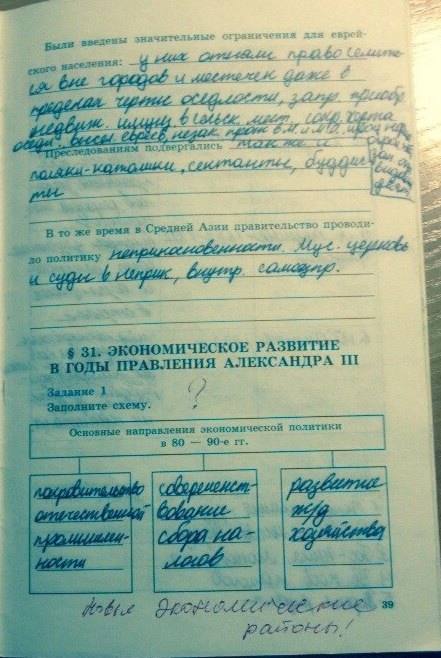 Были введены значительные ограничения для еврей-
ского населения: у них отняли право селить-
ся вне городов и местечек даже в
пределах черты оседлости, запр. приобр.
недвиж. имущ. в сельск. мест., сокр. черта
оседл., высел. евреев, незак. прож. в М. и
Преследованиям подвергались также и
поляки-католики, сектанты, буддис-
ты
В то же время в Средней Азии правительство проводи-
ло политику неприкосновенности. Мус. церковь
и суды в неприк., внутр. самоупр.
§ 31. ЭКОНОМИЧЕСКОЕ РАЗВИТИЕ
В ГОДЫ ПРАВЛЕНИЯ АЛЕКСАНДРА III
Задание 1
Заполните схему. ?
Основные направления экономической политики
в 80 — 90-е гг.
покровительство
отечественной
промышлен-
ности
совершенст-
вование
сбора на-
логов
развитие
ж/д
хозяйства
39
Новые экономические
районы!